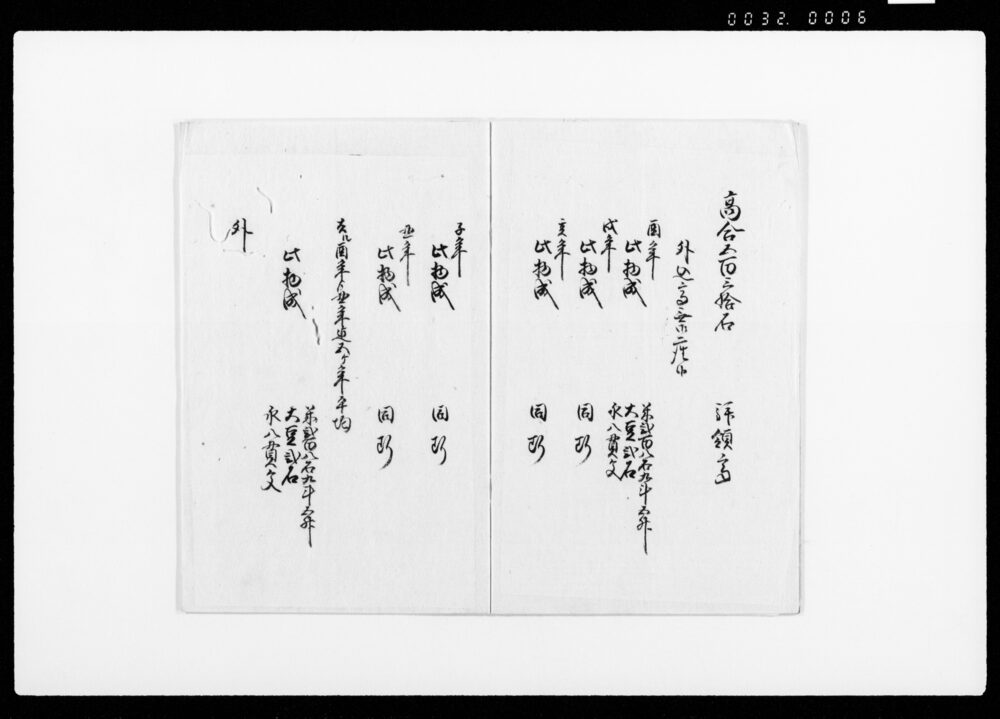 0032. 0006
高合五百三拾石 拝領高
外込高無御座候
酉年
此物成 米弐百八石九斗五升
大豆弐石
永八貫文
戌年
此物成 同断
亥年
此物成 同断
子年
此物成 同断
丑年
此物成 同断
右酉年ゟ丑年迄五ケ年平均
此物成 米弐百八石九斗五升
大豆弐石
永八貫文
外